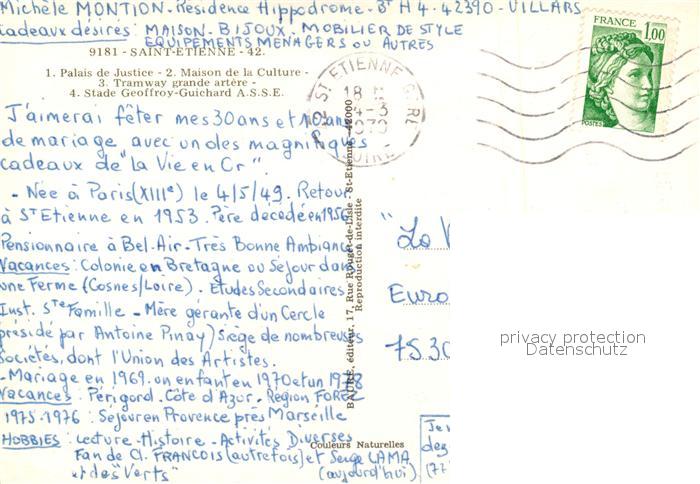 Michèle MONTION. Résidence Hippodrome. Bt H4. 42390 - VILLARS
Cadeaux désirés : MAISON. BIJOUX. MOBILIER DE STYLE
EQUIPEMENTS MENAGERS OU AUTRES
9181 - SAINT-ETIENNE - 42.
1. Palais de Justice - 2. Maison de la Culture -
3. Tramway grande artère -
4. Stade Geoffroy-Guichard A.S.S.E.
J'aimerai fêter mes 30 ans et 10 ans
de mariage avec un des magnifiques
cadeaux de "la Vie en Cr".
- Née à Paris (XIIIe) le 4/5/49. Retour
à St Etienne en 1953. Père decedé en 1950
Pensionnaire à Bel-Air - Très Bonne Ambiance
Vacances : Colonie en Bretagne ou Séjour dans
une Ferme (Cosnes/Loire). Etudes Secondaires
Inst. Ste Famille - Mère gérante d'un Cercle
présidé par Antoine Pinay) Siège de nombreuses
Sociétés, dont l'Union des Artistes.
- Mariage en 1969. un enfant en 1970 et un 1978
Vacances : Périgord. Côte d'Azur. Région FOREZ
1975-1976 : Séjour en Provence près Marseille
HOBBIES : Lecture - Histoire - Activités Diverses
Fan de Cl. FRANCOIS (autrefois) et Serge LAMA
et des "Verts" (aujourd'hui).
BAURE, éditeur, 17, Rue Rouget-de-Lisle - St-Etienne - 42000
Reproduction interdite
Couleurs Naturelles
ST ETIENNE GARE
18 H
4-3
1979
LOIRE
FRANCE
1,00
POSTES
"La V
Euro
7530
Je
des
(77
privacy protection
Datenschutz